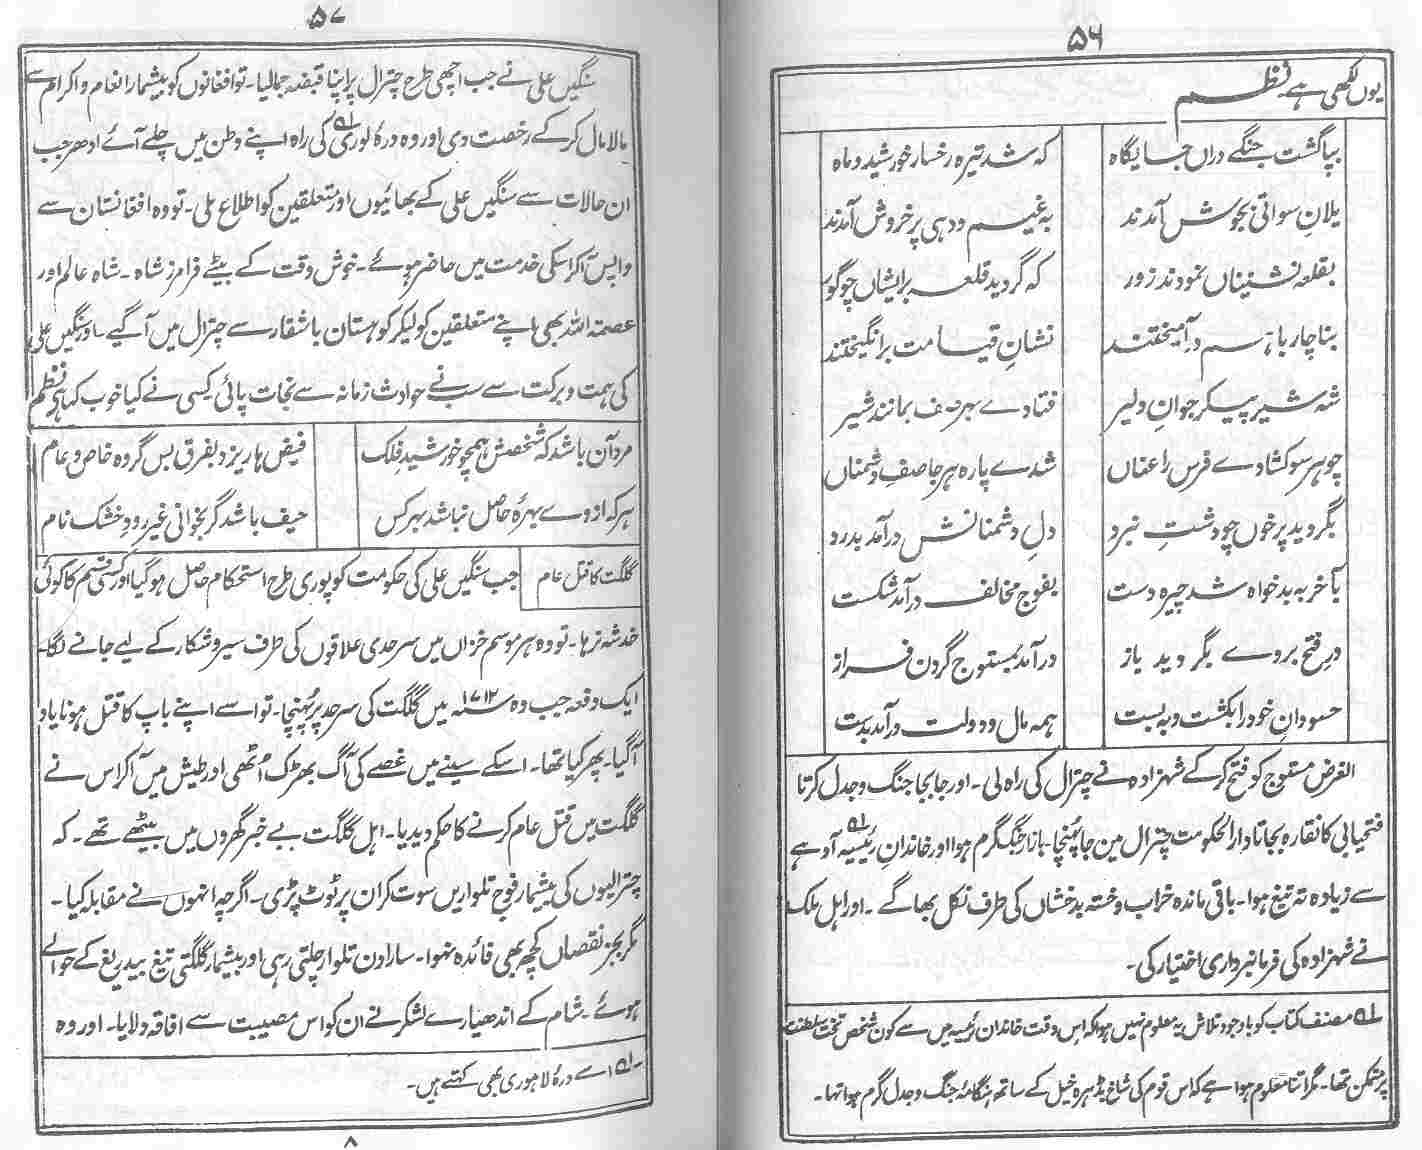 ۵۶
یوں لکھی ہے۔ نظم
بپا گشت جنگے دراں جایگاہ
کہ شد تیرہ رخسار خورشید و ماہ
یلانِ سواتی بجوش آمدند
بہ غیم ودہی پر خروش آمدند
بقلعہ نشیناں نمودند زور
کہ گردید قلعہ برایشاں چو گور
بناچار باہم در آمیختند
نشانِ قیامت برانگیختند
شہ شیر پیکر جوانِ دلیر
فتادے بہر صف بمانند شیر
چو ہر سو کشادے فرس را عناں
شدے پارہ ہر جا صفِ دشمناں
بگردید پرخوں چو دشتِ نبرد
دلِ دشمنانش درآمد بدرد
بآخر بہ بدخواہ شد چیرہ دست
بفوج مخالف درآمد شکست
درِ فتح بروے بگردید باز
درآمد بمستوج گردن فراز
حسودانِ خود را بکشت و بہ بست
ہمہ مال و دولت درآمد بدست
الغرض مستوج کو فتح کرکے شہزادہ نے چترال کی راہ لی۔ اور جابجا جنگ وجدل کرتا
فتحیابی کا نقارہ بجاتا دارالحکومت چترال مین جا پہُنچا۔ بازار جنگ گرم ہوا اور خاندانِ رئیسیہ ؂۱ آدہے
سے زیادہ تہ تیغ ہوا۔ باقی ماندہ خراب وخستہ بدخشاں کی طرف نکل بھاگے۔ اور اہل ملک
نے شہزادہ کی فرمانبرداری اختیار کی۔
؂۱ مصنف کتاب کو باوجود تلاش یہ معلوم نہیں ہوا کہ اس وقت خاندان رئیسیہ میں سے کون شخص تخت سلطنت
پر متمکن تھا۔ مگر اتنا معلوم ہوا ہے کہ اس قوم کی شاخ ہڈہرہ خیل کے ساتھ ہنگامۂ جنگ وجدل گرم ہوا تہا۔
۵۷
سنگیں علی نے جب اچھی طرح چترال پر اپنا قبضہ جمالیا۔ تو افغانوں کو بیشمار انعام و اکرام سے
مالامال کرکے رخصت دی اور وہ درۂ لوری ؂۱ کی راہ اپنے وطن میں چلے آئے ادھر جب
ان حالات سے سنگیں علی کے بھائیوں اور متعلقین کو اطلاع ملی۔ تو وہ افغانستان سے
واپس آکر اسکی خدمت میں حاضر ہوئے۔ خوش وقت کے بیٹے فرامرز شاہ۔ شاہ عالم اور
عصمۃ اللہ بھی اپنے متعلقین کو لیکر کوہستان باشقار سے چترال میں آگیے۔ اور سنگیں علی
کی ہمت و برکت سے سب نے حوادث زمانہ سے نجات پائی کسی نے کیا خوب کہا ہے نظم
مرد آن باشد کہ شخصش ہمچو خورشیدِ فلک
فیض ہا ریزد بفرق بس گروہ خاص و عام
ہر کہ از وے بہرۂ حاصل نباشد بہر کس
حیف باشد گر بخوانی غیر رودِ خشک نام
گلگت کا قتل عام
جب سنگیں علی کی حکومت کو پوری طرح استحکام حاصل ہو گیا اور کسی قسم کا کوئی
خدشہ نرہا۔ تو وہ ہر موسم خزاں میں سرحدی علاقوں کی طرف سیر و شکار کے لیے جانے لگا۔
ایک دفعہ جب وہ ۱۷۱۲ سنہ میں گلگت کی سرحد پر پہُنچا۔ تو اسے اپنے باپ کا قتل ہونا یاد
آگیا۔ پھر کیا تھا۔ اسکے سینے میں غصے کی آگ بھڑک اُٹھی اور طیش میں آکر اس نے
گلگت میں قتل عام کرنے کا حکم دیدیا۔ اہل گلگت بے خبر گھروں میں بیٹھے تھے۔ کہ
چترالیوں کی بیشمار فوج تلواریں سوت کر ان پر ٹوٹ پڑی۔ اگرچہ انہوں نے مقابلہ کیا۔
مگر بجز نقصاں کچھ بھی فائدہ نہوا۔ سارا دن تلوار چلتی رہی اور بیشمار گلگتی تیغ بیدریغ کے حوالے
ہوئے۔ شام کے اندھیارے لشکر نے ان کو اس مصیبت سے افاقہ دلایا۔ اور وہ
؂۱ اسے درۂ لاہوری بھی کہتے ہیں۔
۸